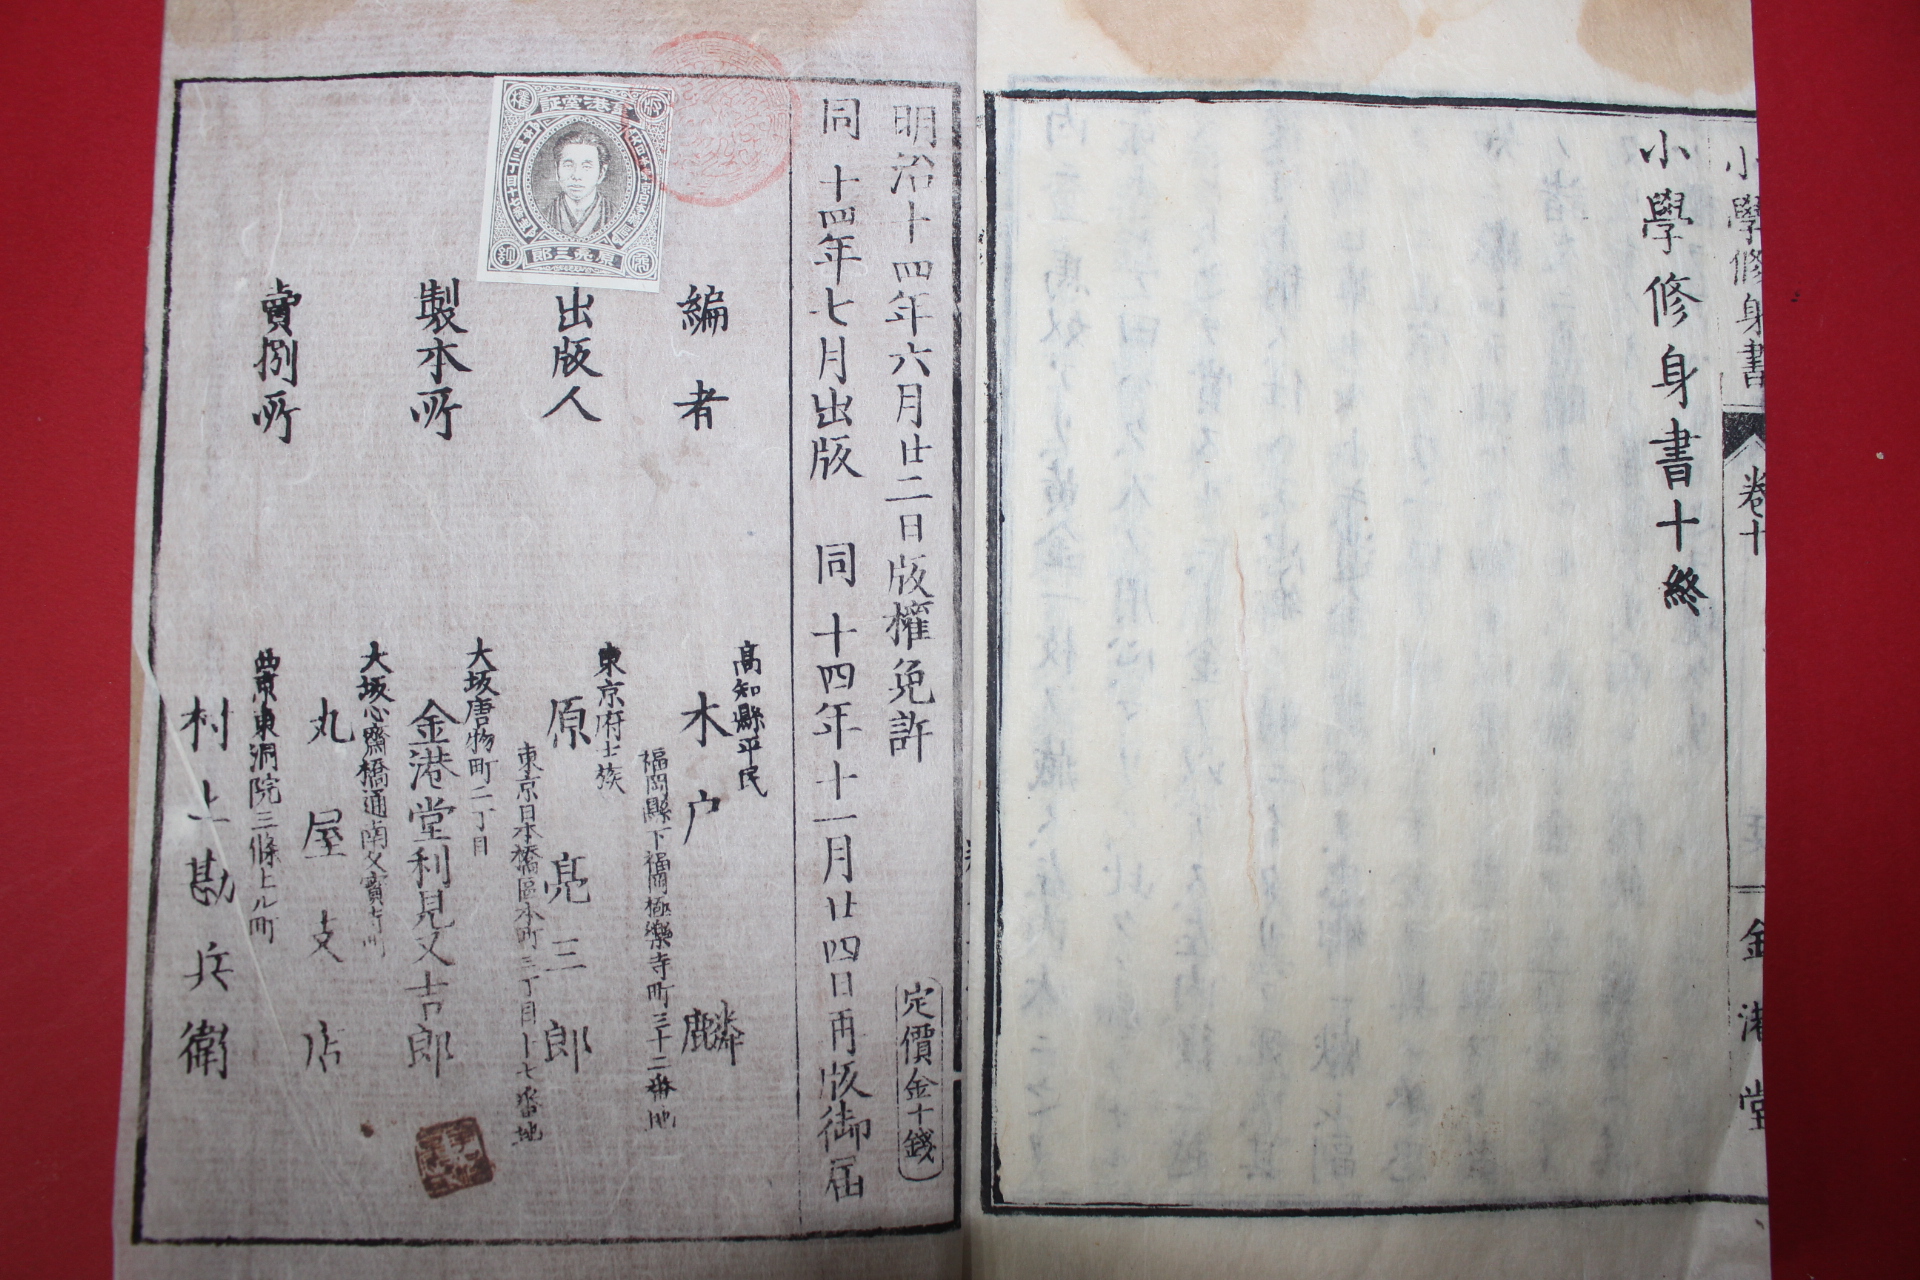 小學修身書
卷十
金港堂
小學修身書十終
明治十四年六月廿二日版權免許
定價金十錢
同十四年七月出版 同十四年十一月廿四日再版御届
編者
高知縣平民
木戸麟
福岡縣下福岡極樂寺町三十二番地
出版人
東京府士族
原亮三郎
東京日本橋區本町三丁目十七番地
製本所
大坂唐物町二丁目
金港堂利見又吉郎
賣捌所
大坂心齋橋通南久寳寺町
丸屋支店
西京東洞院三條上ル町
村上勘兵衛
金港堂証
原亮三郎